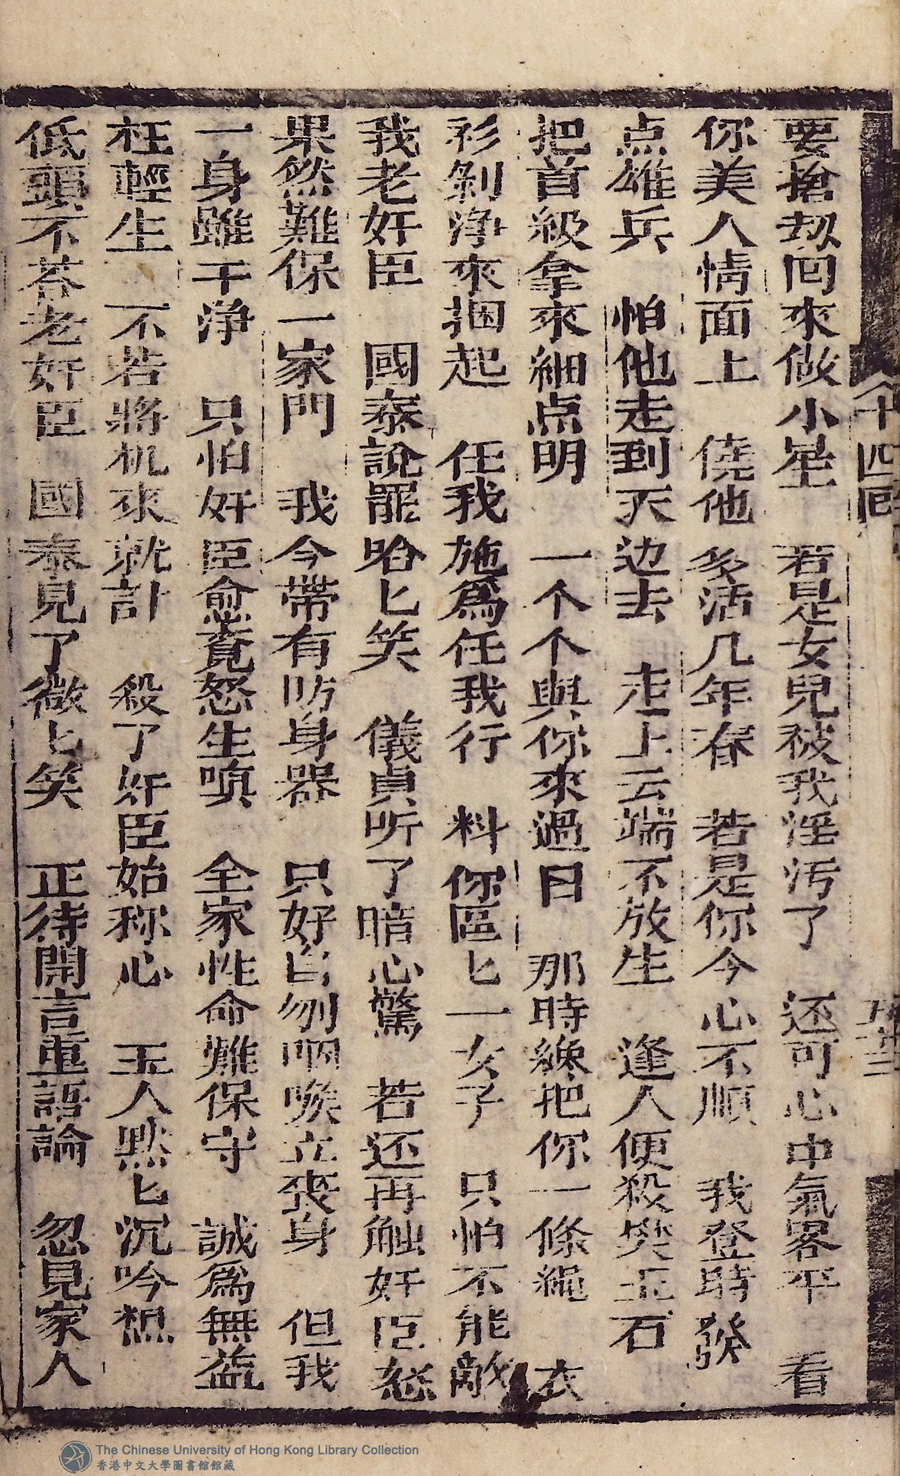 要搶刼回來做小星　若是女兒被我淫污了　还可心中氣畧平　看
你美人情面上　僥他多活几年春　若是你今心不順　我登時發
点雄兵　怕他走到天边去　走上云端不放生　逢人便殺焚玉石
把首級拿來細点明　一个个與你來過目　那時縁把你一條繩　衣
衫剝净來捆起　任我施爲任我行　料你區匕一女子　只怕不能敵
我老奸臣　國泰說罷哈匕笑　儀貞听了暗心驚　若还再触奸臣怒
果然難保一家門　我今帶有防身器　只好自刎咽喉立喪身　但我
一身雖干净　只怕奸臣愈竟怒生嗔　全家性命難保守　誠爲無益
枉輕生　不若將机來就計　殺了奸臣始称心　玉人黙匕沉吟想
低頭不荅老奸臣　國泰見了微匕笑　正待開言重語論　忽見家人
十四回
The Chinese University of Hong Kong Library Collection
香港中文大學圖書館館藏